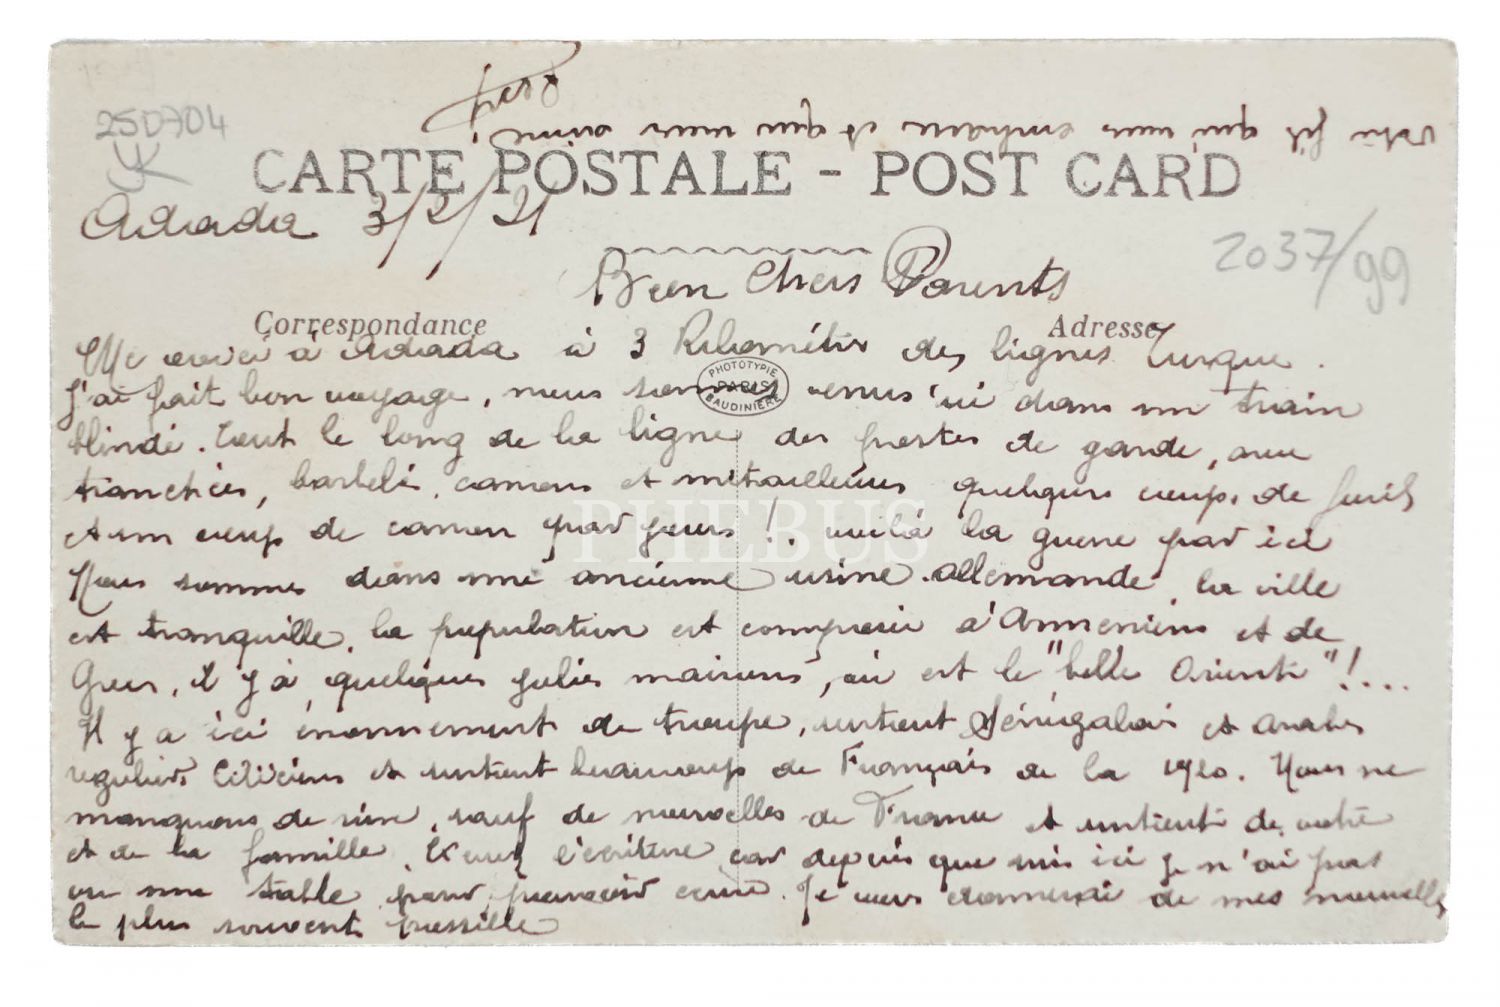 25D704
CARTE POSTALE - POST CARD
Adada 3/2/21
2037/99
Bien Chers Parents
Correspondance
Adresse
Me voici à Adada à 3 Kilomètres des lignes Turque.
J'ai fait bon voyage, nous sommes venus ici dans un train
PHOTOTYPIE
PARIS
BAUDINIERE
blindé. Tout le long de la ligne des postes de garde, avec
tranchées, barbelé, canons et mitrailleuses quelques coups de fusils
et un coup de canon par jours!. voilà la guerre par ici
PHEBUS
Nous sommes dans une ancienne usine allemande, la ville
est tranquille, la population est composée d'Armeniens et de
Grecs, il y à quelques jolies maisons, où est le "belle Orient"!...
Il y a ici énormement de troupe, surtout Sénégalais et arabes
regulier, Ciliciens et surtout beaucoup de Français de la 1920. Nous ne
manquons de rien, sauf de nouvelles de France et surtout de votre
et de la famille. Excusez l'écriture car depuis que suis ici je n'ai pas
vu une table pour pouvoir ecrire. Je vous donnerai de mes nouvelles
le plus souvent possible
Votre fils qui vous embrasse et qui vous aime